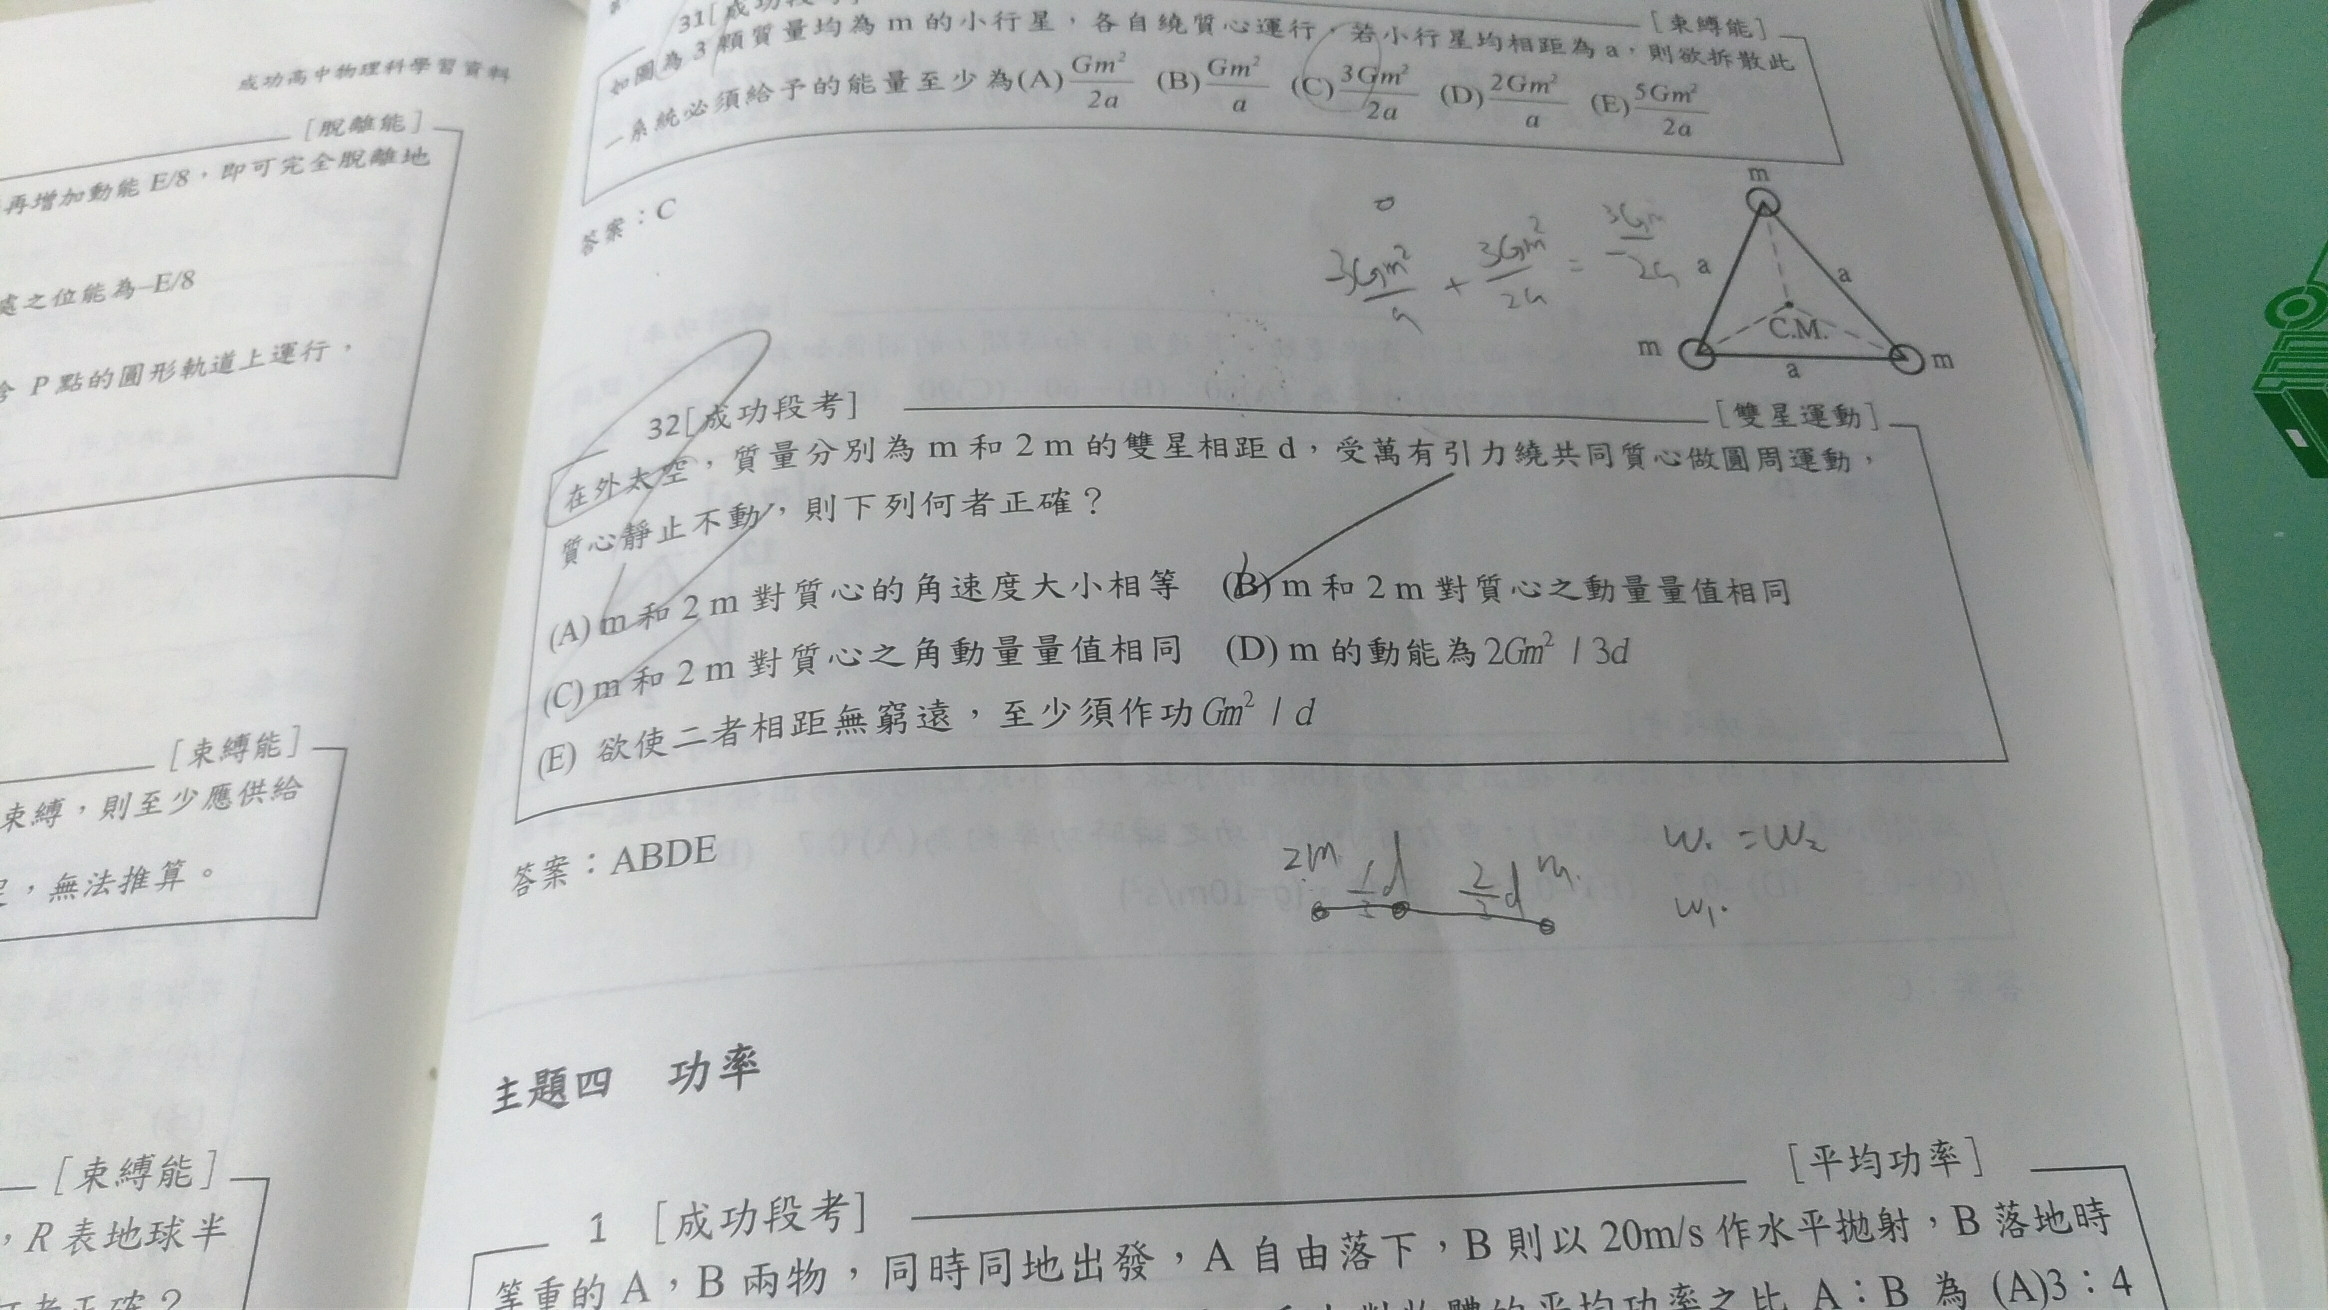 成功高中物理科學習資料
[脫離能]
再增加動能 E/8，即可完全脫離地
處之位能為–E/8
P 點的圓形軌道上運行，
[束縛能]
束縛，則至少應供給
，無法推算。
[束縛能]
，R 表地球半
31[成功段考]
[束縛能]
如圖為 3 顆質量均為 m 的小行星，各自繞質心運行，若小行星均相距為 a，則欲拆散此
一系統必須給予的能量至少為(A) Gm²/2a (B) Gm²/a (C) 3Gm²/2a (D) 2Gm²/a (E) 5Gm²/2a
答案：C
m
a
a
C.M.
m
a
m
0
-3Gm²/a + 3Gm²/2a =
32[成功段考]
[雙星運動]
在外太空，質量分別為 m 和 2 m 的雙星相距 d，受萬有引力繞共同質心做圓周運動，
質心靜止不動，則下列何者正確？
(A) m 和 2 m 對質心的角速度大小相等 (B) m 和 2 m 對質心之動量量值相同
(C) m 和 2 m 對質心之角動量量值相同 (D) m 的動能為 2Gm² / 3d
(E) 欲使二者相距無窮遠，至少須作功 Gm² / d
答案：ABDE
2m 1/3 d 2/3 d m
W₁ = W₂
W₁.
主題四 功率
[平均功率]
1 [成功段考]
等重的 A，B 兩物，同時同地出發，A 自由落下，B 則以 20m/s 作水平拋射，B 落地時
的平均功率之比 A：B 為 (A)3：4